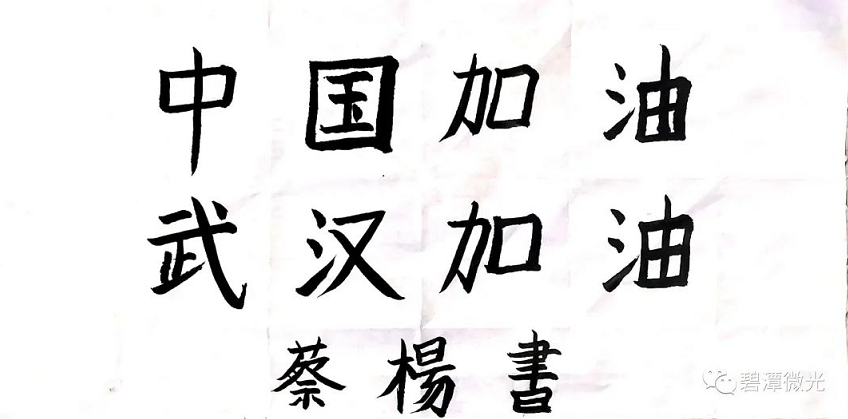 中国加油
武汉加油
蔡楊書
碧潭微光